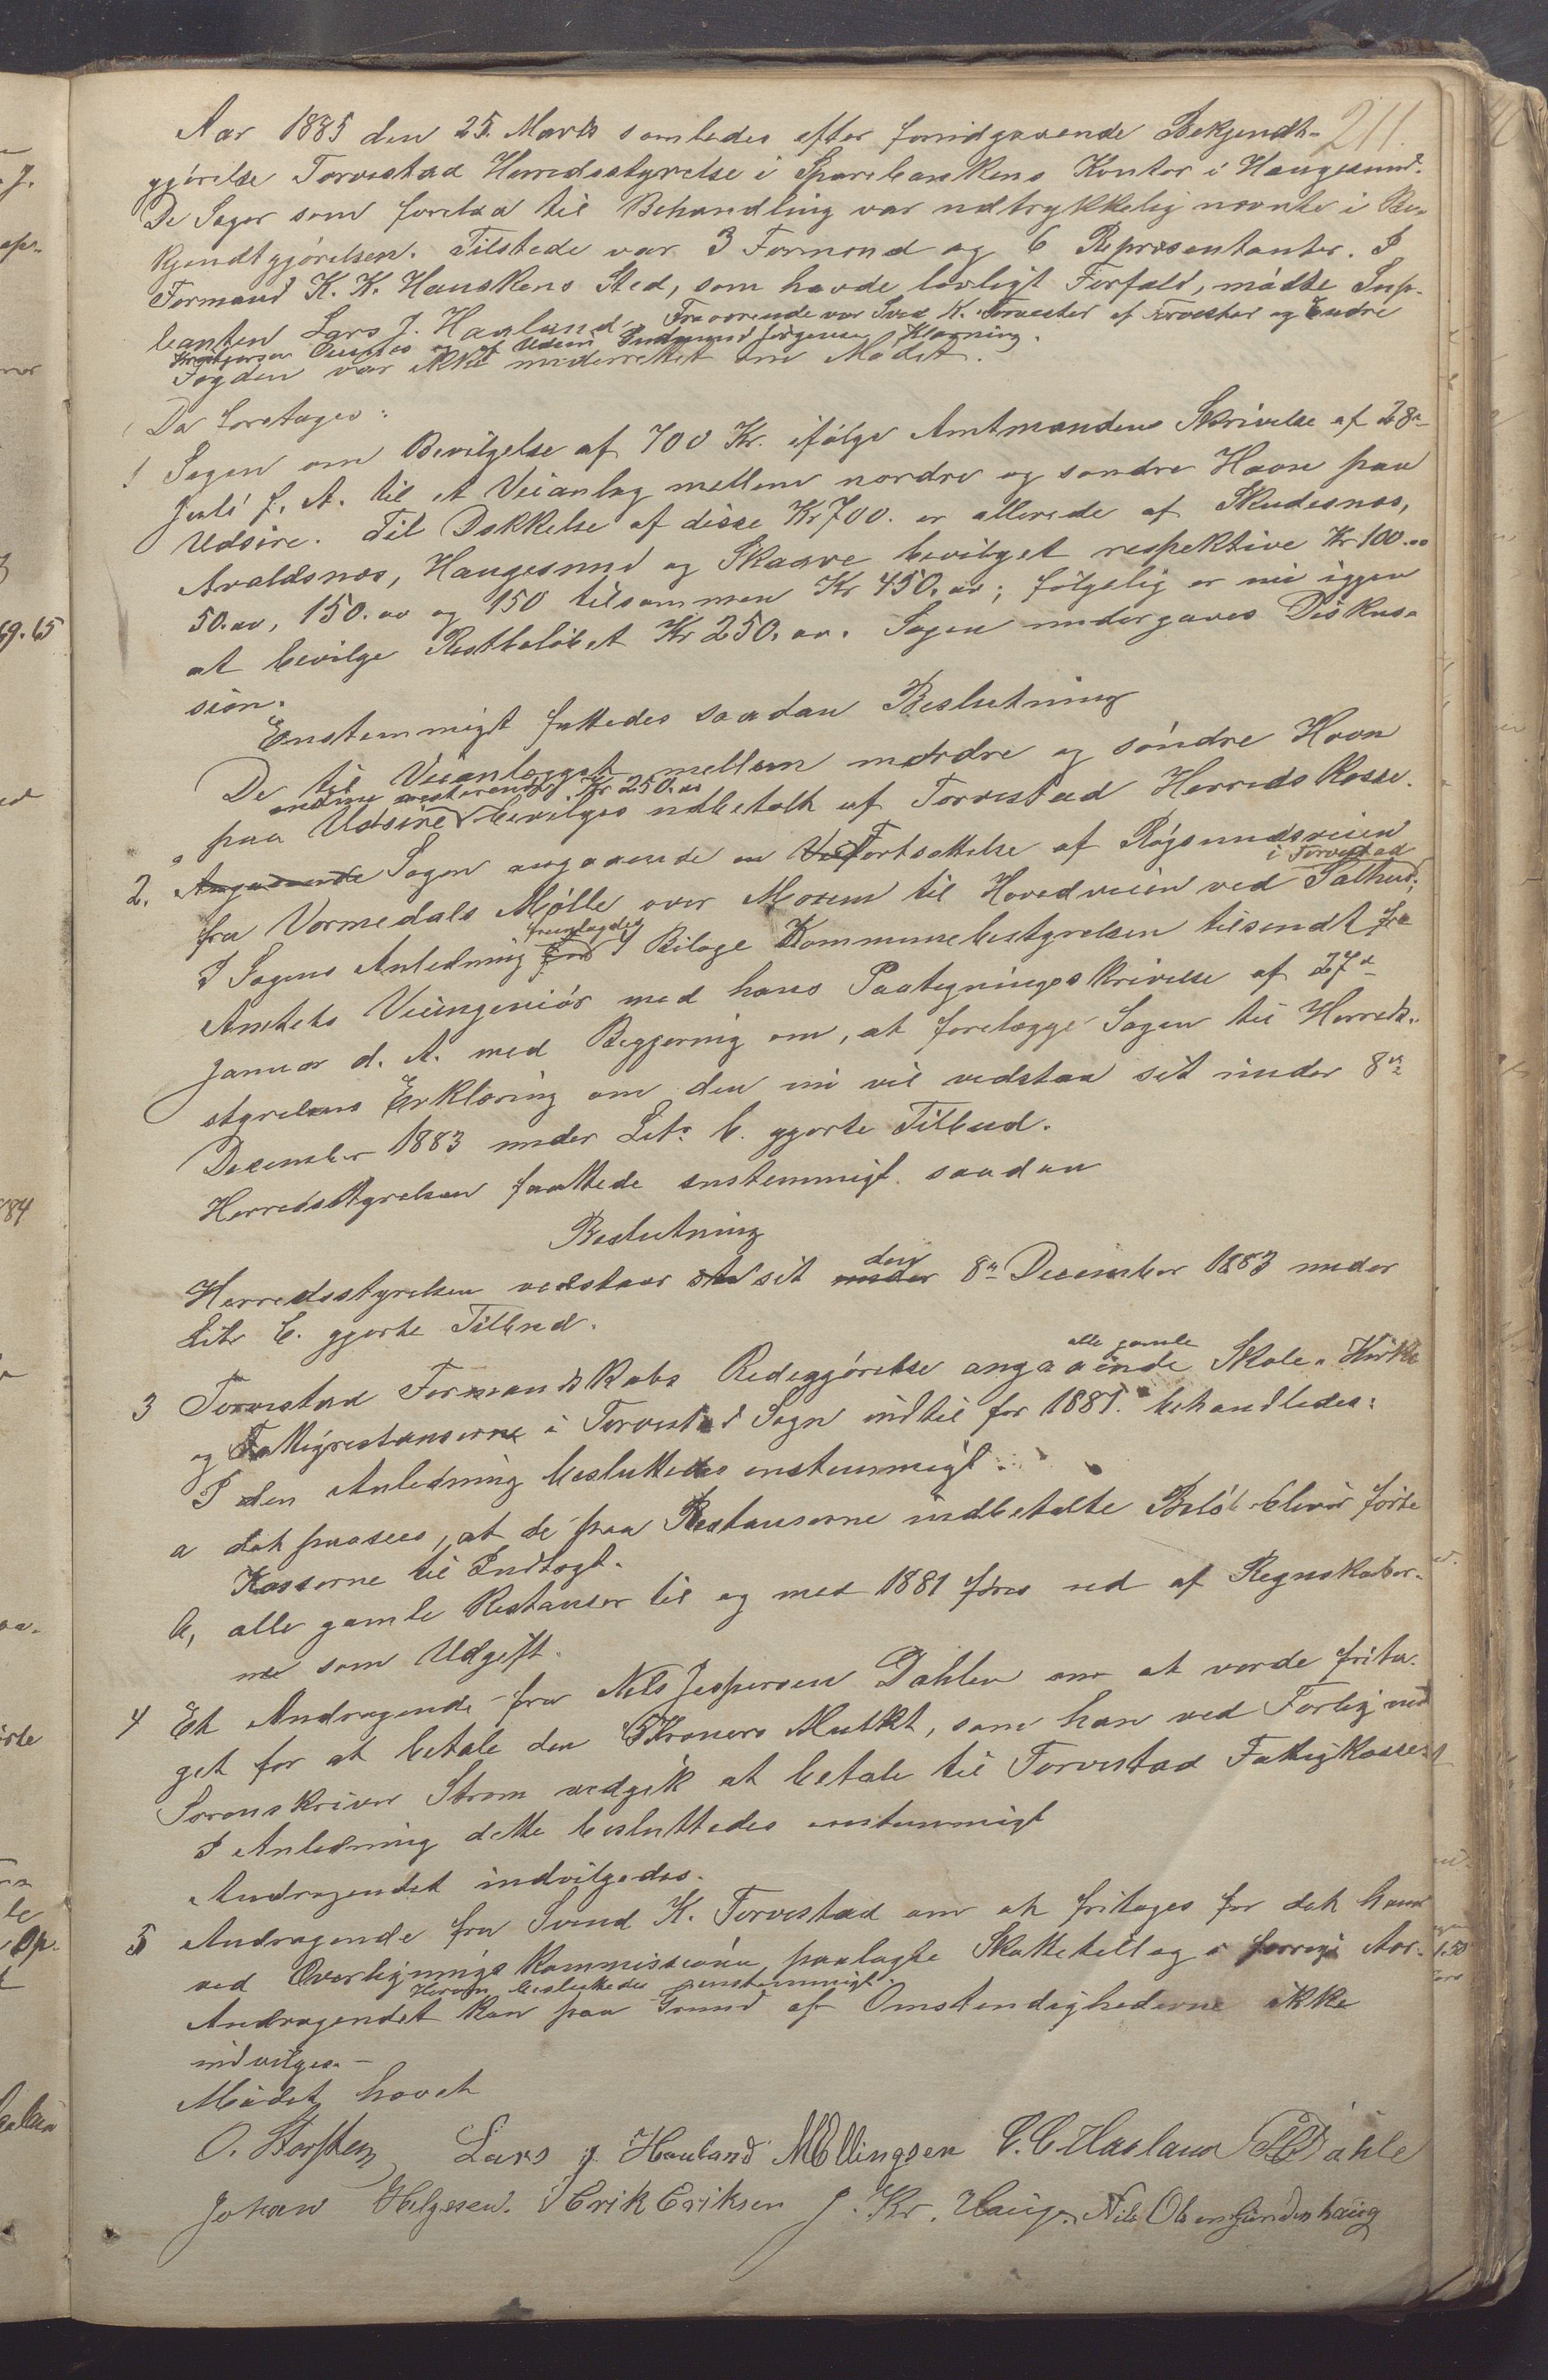 211.
Aar 1885 den 25. Marts samledes efter forudgaaende Bekjendt-
gjørelse Torvestad Herredsstyrelse i Sparebankens Kontor i Haugesund.
De Sager som forelaa til Behandling var udtrykkelig nævnte i Be-
kjendtgjørelsen. Tilstede var 3 Formænd og 6 Repræsentanter. I
Formand K. K. Hauskens Sted, som havde lovligt Forfald, mødte Sup-
leanten Lars J. Hauland. Fraværende var Svend K. Torvestad af Torvestad og Endre
og af Udsire Gudmund Jørgensen Klovning.
Fogden var ikke underrettet om Mødet.
Da foretages:
1 Sagen om Bevilgelse af 700 Kr. ifølge Amtmandens Skrivelse af 28de
Juli f. A. til et Veianlæg mellem nordre og søndre Havn paa
Udsire. Til Dækkelse af disse Kr 700. er allerede af Skudesnæs,
Avaldsnæs, Haugesund og Skaare bevilget respektive Kr 100.00
50.00, 150.00 og 150 tilsammen Kr 450.00; følgelig er nu igjen
at bevilge Restbeløbet Kr 250.00. Sagen undergaves Diskus-
sion.
Enstemmigt fattedes saadan Beslutning
De til Veianlægget mellem nordre og søndre Havn
endnu resterende Kr 250.00
paa Udsire bevilges udbetalt af Torvestad Herredskasse.
2. Angaaende Sagen angaaende en Vei Fortsættelse af Røgsundsveien
i Torvestad
fra Vormedals Mølle over Moxem til Hovedveien ved Salhus;
fremlagdes
I Sagens Anledning 9 Bilage Kommunebestyrelsen tilsendt fra
Amtets Veiingeniør med hans Paategningsskrivelse af 27de
Januar d. A. med Begjæring om, at forelægge Sagen til Herreds-
styrelsens Erklæring om den nu vil vedstaa sit under 8de
December 1883 under Litr. C. gjorte Tilbud.
Herredsstyrelsen fattede enstemmigt saadan
Beslutning
den
Herredsstyrelsen vedstaar sit under 8de December 1883 under
Litr C. gjorte Tilbud.
alle gamle
3 Torvestad Formandskabs Redegjørelse angaaende Skole- Kirke
og Fattigrestanserne i Torvestad Sogn indtil for 1881. behandledes:
I den Anledning besluttedes enstemmigt:
a det paasees, at de paa Restanserne indbetalte Beløb bliver førte
Kasserne til Indtægt.
b, alle gamle Restanser til og med 1881 føres ud af Regnskaber-
ne som Udgift.
4 Et Andragende fra Nils Jespersen Dahlen om at vorde frita-
get for at betale den Kroners Mulkt, som han ved Forlig ved
Sorenskriver Strøm vedgik at betale til Torvestad Fattigkasse.
I Anledning dette besluttedes enstemmigt
Andragendet indvilgedes.
5 Andragende fra Svend K. Torvestad om at fritages for det ham
ved Overligningskommissionen paalagte Skattetillæg i forrige Aar.
Herom besluttedes enstemmigt:
Andragendet kan paa Grund af Omstændighederne ikke
indvilges.-
Mødet hævet
O. Storsten Lars J. Hauland M Ellingsen C. C. Haaland Dahle
Johan Helgesen. Erik Eriksen J. Kr. Hauge. Nils Olsen Gundershaug